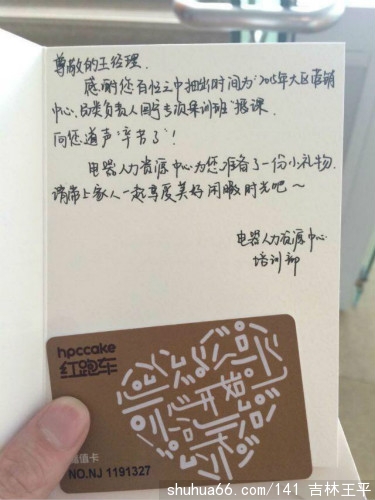 尊敬的王经理.
感谢您百忙之中抽出时间为“2015年大区营销
中心、品类负责人国号专项集训班”授课.
向您道声“辛苦了”！
电器人力资源中心为您准备了一份小礼物.
请带上家人一起享度美好闲暇时光吧～
电器人力资源中心
培训部
hpccake
红跑车
开始
心
值卡
NO.NJ 1191327
shuhua66.com/141 吉林王平